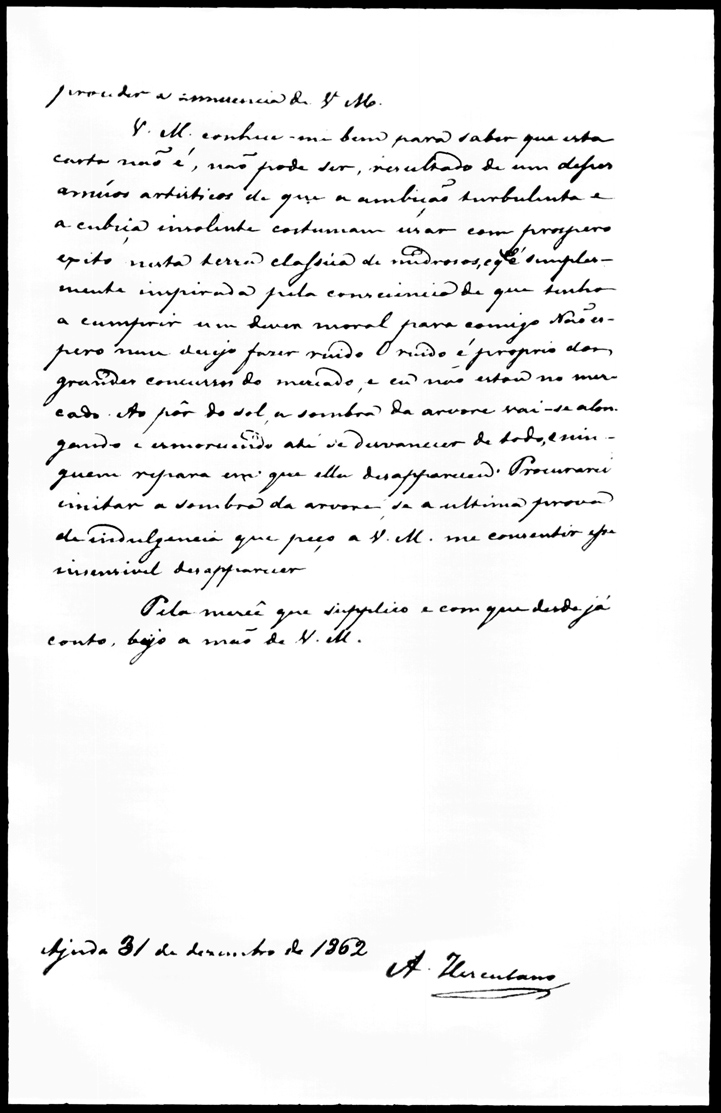 proceder a annuencia de V. M.
V. M. conhece-me bem para saber que esta
carta não é, não pode ser, resultado de um desses
amúos artisticos de que a ambição turbulenta e
a cubiça insolente costumam usar com prospero
exito nesta terra classica de medrosos, e q̃ é simples-
mente inspirada pela consciencia de que tenho
a cumprir um dever moral para comigo Não es-
pero nem desejo fazer ruido O ruido é proprio dos
grandes concursos do mercado, e eu não estou no mer-
cado. Ao pôr do sol, a sombra da arvore vai-se alon-
gando e esmorecendo até se desvanecer de todo, e nin-
guem repara em que ella desappareceu. Procurarei
imitar a sombra da arvore, se a ultima prova
de indulgencia que peço a V. M. me consentir esse
insensivel desapparecer
Pela mercê que supplico e com que desde já
conto, bejo a mão de V. M.
Ajuda 31 de dezembro de 1862
A. Herculano